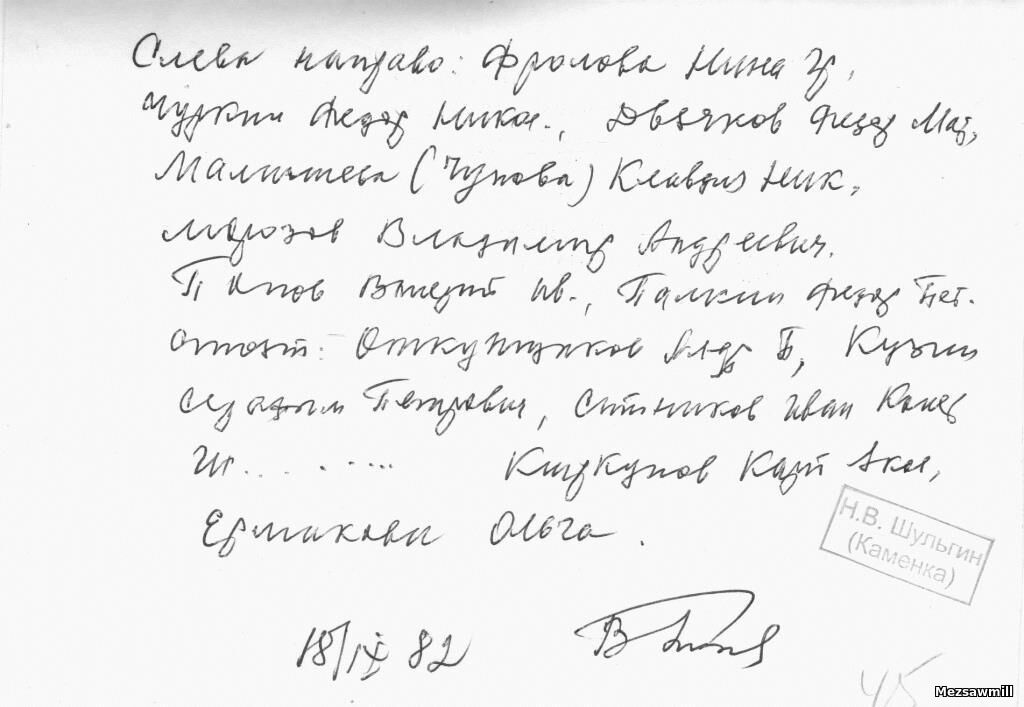 Слева направо: Фролова Нина Гр.
Чуркин Федор Никол., Дьяков Федор Мат,
Малышева (Чупова) Клавдия Ник,
Морозов Владимир Андреевич.
Попов Валерий Ив., Палкин Федор Пет.
стоят: Откупщиков Алдр Б, Кузин
Серафим Петрович, Ситников Иван
Киркунов Карп
Ермакова Ольга.
Н.В. Шульгин
(Каменка)
18/IX 82
45
Mezsawmill